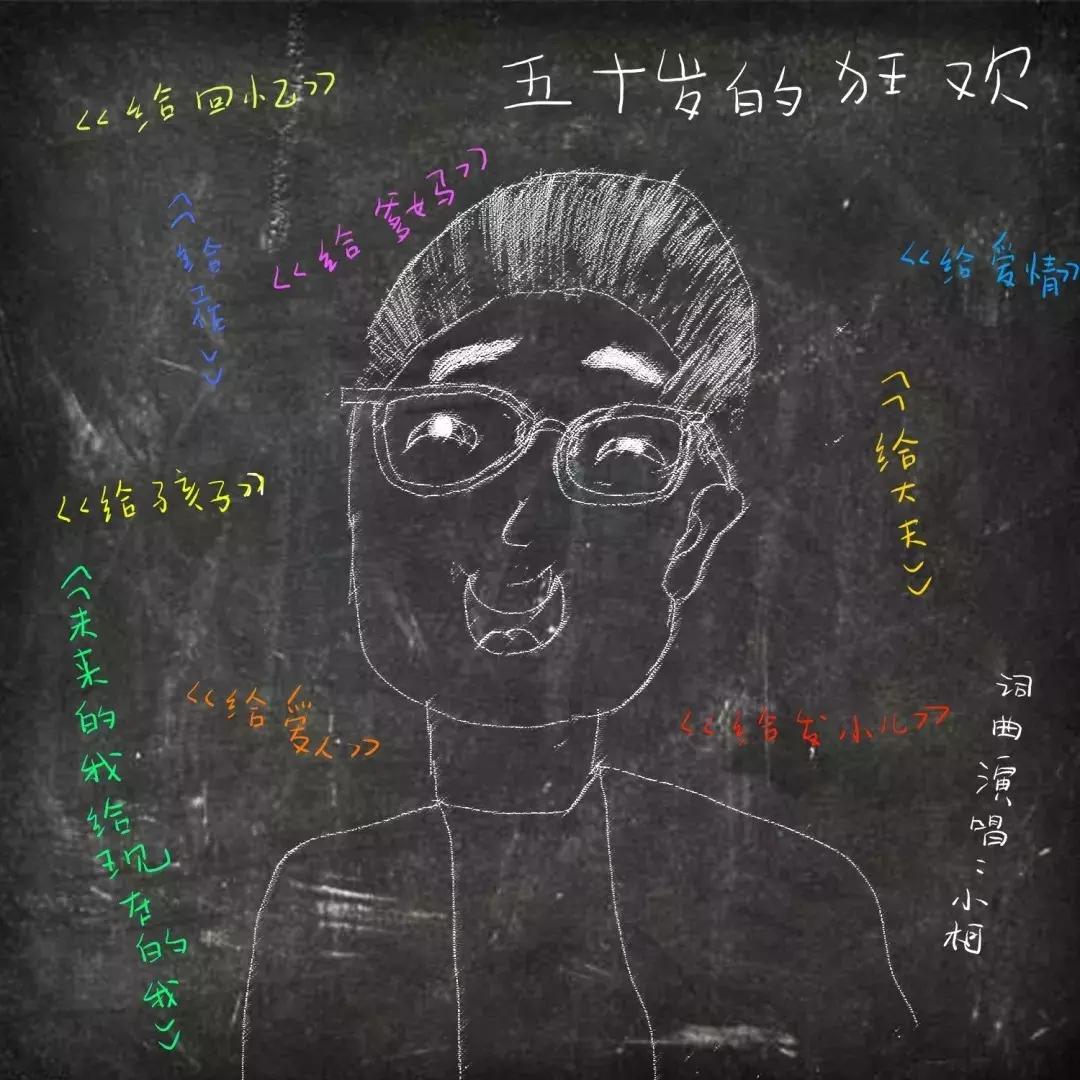 五十岁的狂欢
<<给回忆>>
<<给爹妈>>
<<给工作>>
<<给爱情>>
<<给大夫>>
<<给孩子>>
<<未来的我给现在的我>>
<<给爱人>>
<<给发小儿>>
词曲演唱:小相